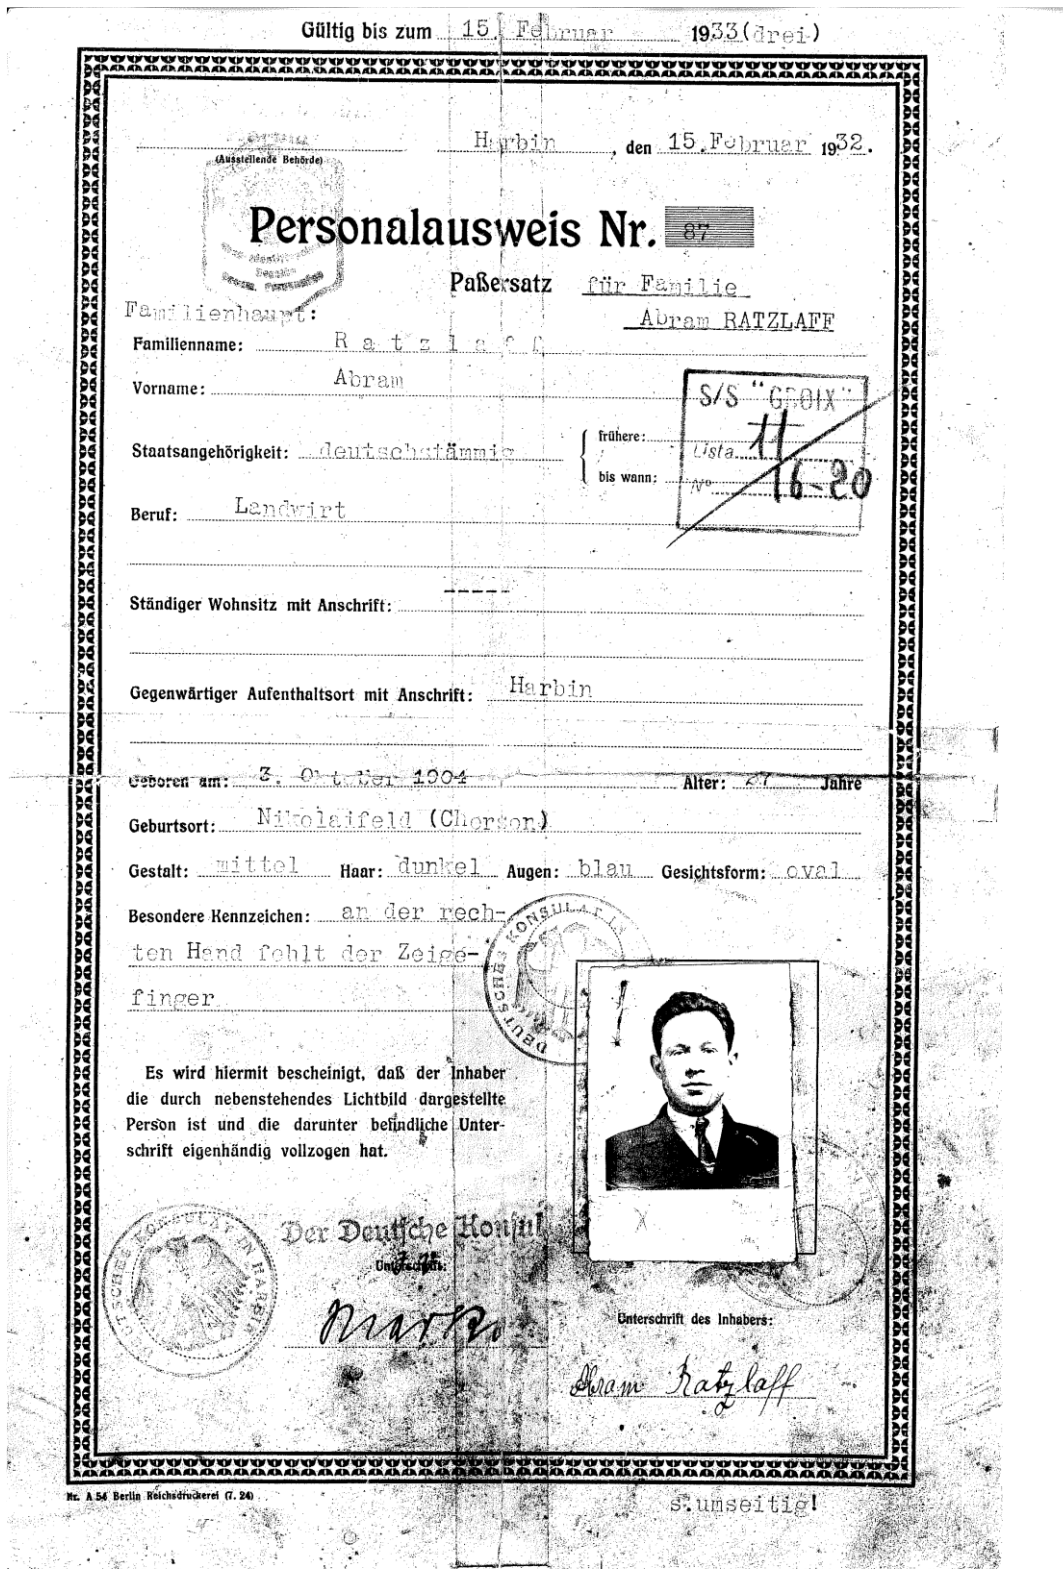 Gültig bis zum 15. Februar 1933 (drei)
Harbin, den 15. Februar 1932.
(Ausstellende Behörde)
Personalausweis Nr. 87
Paßersatz für Familie
Familienhaupt: Abram RATZLAFF
Familienname: Ratzlaff
Vorname: Abram
S/S "GROIX"
Staatsangehörigkeit: deutschstämmig
frühere:
Lista 11
bis wann:
Nº 16-20
Beruf: Landwirt
Ständiger Wohnsitz mit Anschrift: -----
Gegenwärtiger Aufenthaltsort mit Anschrift: Harbin
Geboren am: 3. Oktober 1904 Alter: 27 Jahre
Geburtsort: Nikolaifeld (Cherson)
Gestalt: mittel Haar: dunkel Augen: blau Gesichtsform: oval
Besondere Kennzeichen: an der rech-
ten Hand fehlt der Zeige-
finger
DEUTSCHES KONSULAT IN
Es wird hiermit bescheinigt, daß der Inhaber
die durch nebenstehendes Lichtbild dargestellte
Person ist und die darunter befindliche Unter-
schrift eigenhändig vollzogen hat.
DEUTSCHES KONSULAT IN HARBIN
Der Deutsche Konsul
Unterschrift:
Unterschrift des Inhabers:
Abram Ratzlaff
Nr. A 54 Berlin Reichsdruckerei (7. 24)
s.umseitig!